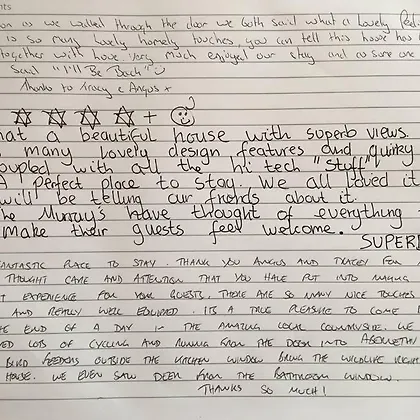 nts
on as we walked through the door we both said what a lovely
is so many lovely homely touches, you can tell this house has
together with love very much enjoyed our stay and as sure one
said "I'll Be Back"
Thanks to Tracy & Angus x
+
hat a beautiful house with superb views.
many lovely design features and quirky
oupled with all the hi tech "stuff"
A perfect place to stay. We all loved it
will be telling our friends about it.
he Murray's have thought of everything
make their guests feel welcome.
SUPERB
ANTASTIC PLACE TO STAY. THANK YOU ANGUS AND TRACEY FOR A
THOUGHT CARE AND ATTENTION THAT YOU HAVE PUT INTO MAKING
T EXPERIENCE FOR YOUR GUESTS. THERE ARE SO MANY NICE TOUCHES
AND REALLY WELL EQUIPPED. ITS A TRUE PLEASURE TO COME
HE END OF A DAY IN THE AMAZING LOCAL COUNTRYSIDE. WE
ED LOTS OF CYCLING AND RUNNING FROM THE DOOR INTO ABERNETHY
BIRD FEEDERS OUTSIDE THE KITCHEN WINDOW BRING THE WILDLIFE RIGHT
HOUSE. WE EVEN SAW DEER FROM THE BATHROOM WINDOW.
THANKS SO MUCH!